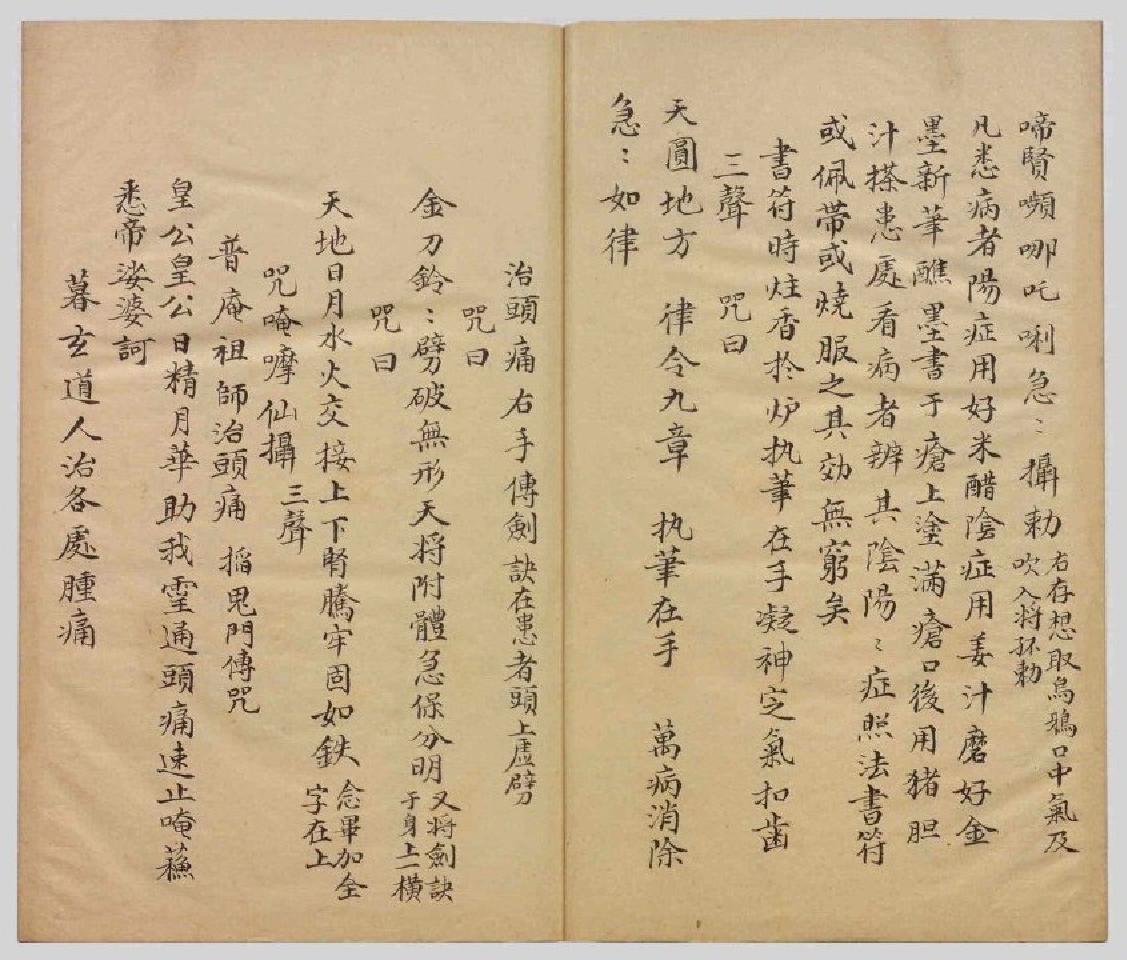 啼賢嚬哪吒唎急〻攝勅右存想取烏鴉口中氣及
吹入將杯勅
凡患病者陽症用好米醋陰症用姜汁磨好金
墨新筆醮墨書于瘡上塗滿瘡口後用猪胆
汁搽患處看病者辨其陰陽〻症照法書符
或佩帶或燒服之其効無窮矣
書符時炷香扵炉执筆在手凝神定氣扣齒
三聲 咒曰
天圓地方 律令九章 执筆在手 萬病消除
急〻如律
治頭痛右手傳劍訣在患者頭上虛劈
咒曰
金刀鈴〻劈破無形天将附體急保分明又将劍訣
于身上一橫
咒曰
天地日月水火交接上下腎騰牢固如鉄念畢加全
字在上
咒唵嚤仙攝三聲
普庵祖師治頭痛 搯鬼門傳咒
皇公皇公日精月華助我靈通頭痛速止唵蘓
悉帝娑婆訶
暮玄道人治各處腫痛